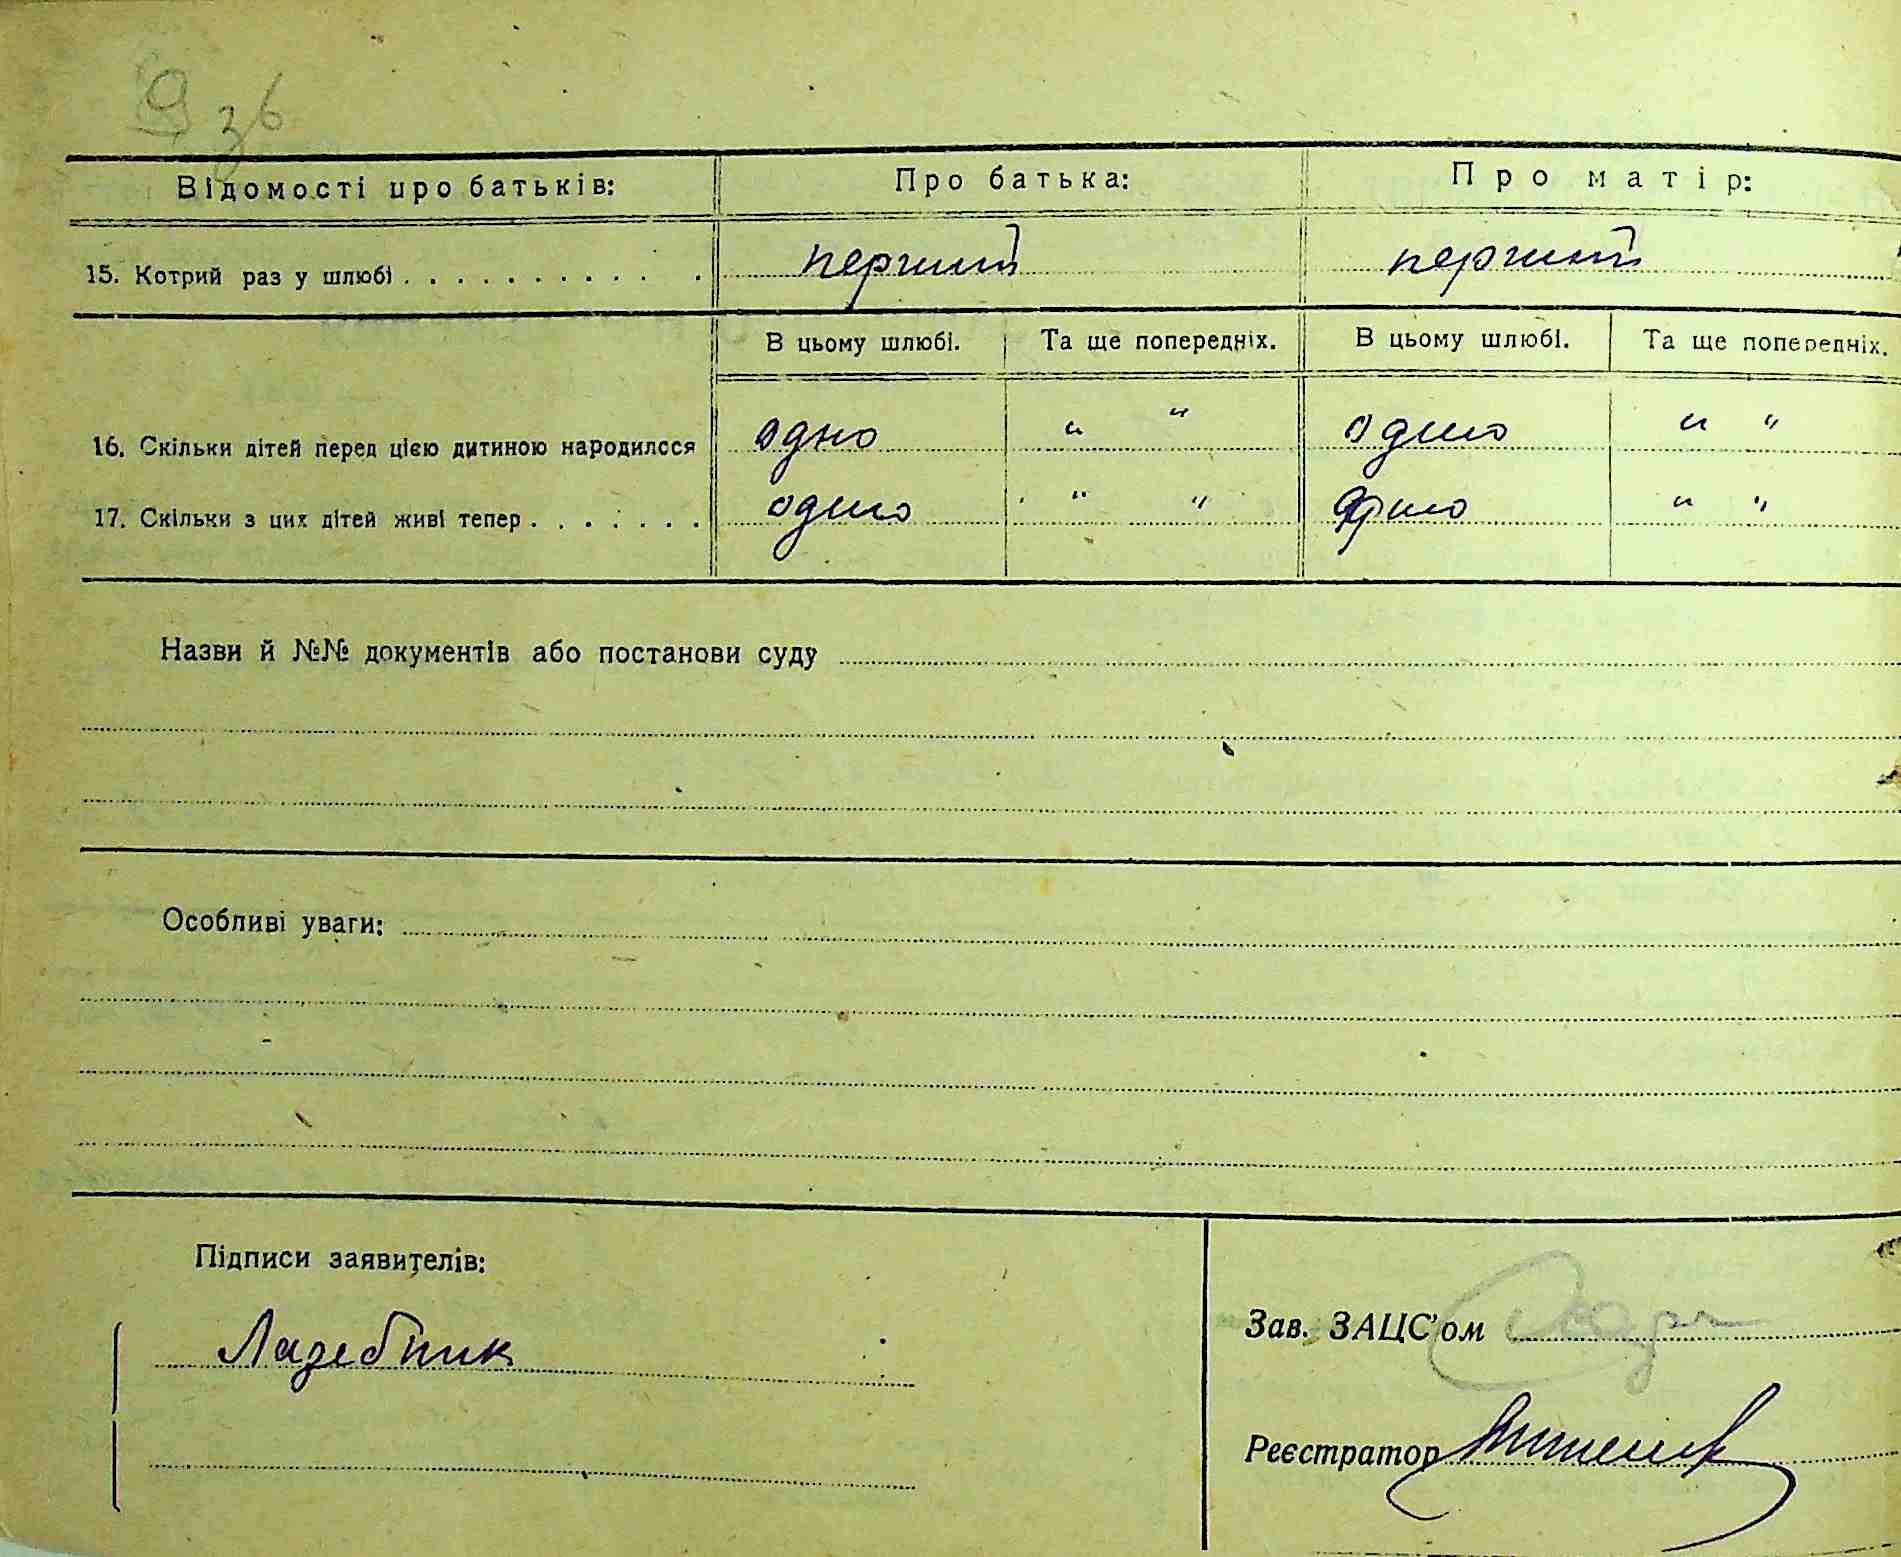 9 зв
Відомості про батьків: Про батька: Про матір:
15. Котрий раз у шлюбі . . . . . . . . . . . перший перший
В цьому шлюбі. Та ще попередніх. В цьому шлюбі. Та ще попередніх.
16. Скільки дітей перед цією дитиною народилсся одно " " одно " "
17. Скільки з цих дітей живі тепер . . . . . . . одно " " одно " "
Назви й №№ документів або постанови суду
Особливі уваги:
Підписи заявителів:
Зав. ЗАЦС'ом
Лазебник
Реєстратор